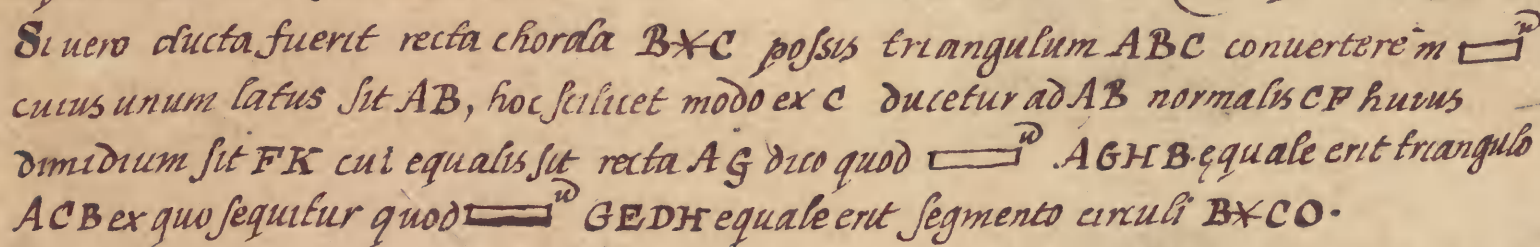 Si uero ducta fuerit recta chorda B✕C possis triangulum ABC conuertere in ▭
cuius unum latus sit AB, hoc scilicet modo ex C ducetur ad AB normalis CF huius
dimidium sit FK cui equalis sit recta AG dico quod ▭ AGHB. ęquale erit triangulo
ACB ex quo sequitur quod ▭ GEDH equale erit segmento circuli B✕CO.